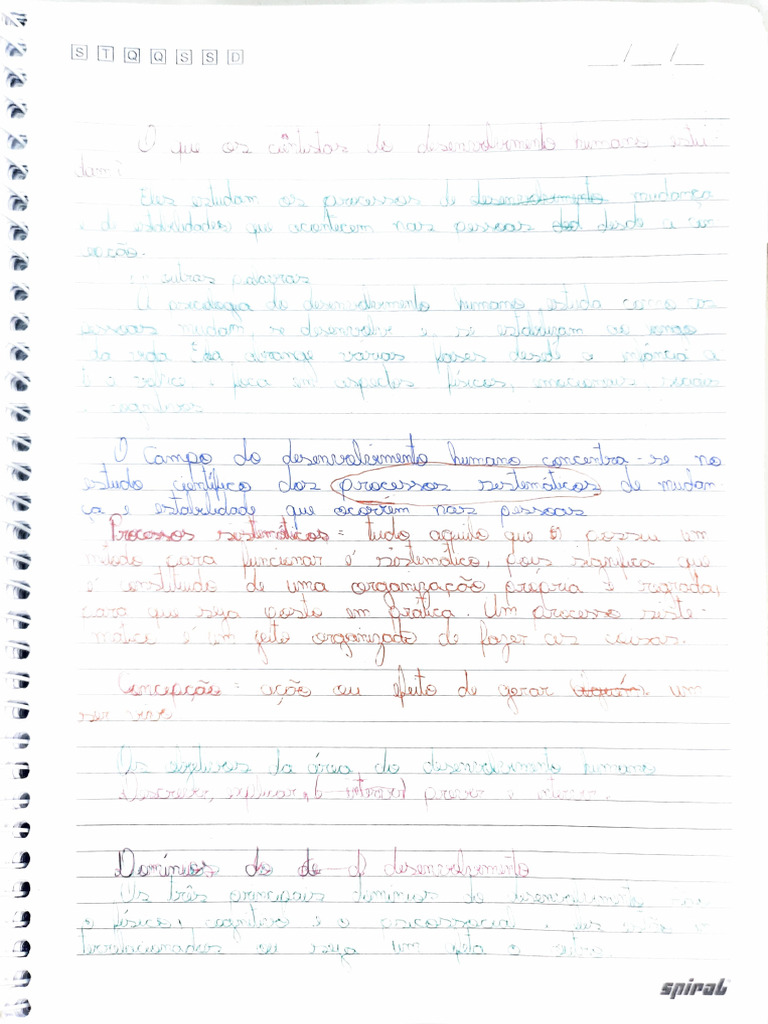 S T Q Q S S D
__/__/__
O que os cientistas do desenvolvimento humano estu-
dam?
Eles estudam os processos de desenvolvimento mudança
e de estabilidades que acontecem nas pessoas desde a con
cepção.
outras palavras
A psicologia do desenvolvimento humano, estuda como as
pessoas mudam, se desenvolver e se estabilizam ao longo
da vida. Ela abrange varias fases desde a infância a
e a velhice. foca em aspectos físicos, emocionais, sociais
e cognitivos
O Campo do desenvolvimento humano concentra-se no
estudo científico dos processos sistemáticos de mudan-
ça e estabilidade que ocorrem nas pessoas
Processos sistemáticos = tudo aquilo que possui um
método para funcionar é sistemático, pois significa que
é constituido de uma organização própria e regrada,
para que seja posto em prática. Um processo siste-
mático é um jeito organizado de fazer as coisas.
Concepção = ação ou efeito de gerar (alguém) um
ser vivo
Os objetivos da área do desenvolvimento humano
Descrever, explicar, prever e intervir.
Domínios do desenvolvimento
Os três principais domínios do desenvolvimento são
o físico, cognitivo e o psicossocial. eles estão in
terrelacionados ou seja um afeta o outro.
spiral